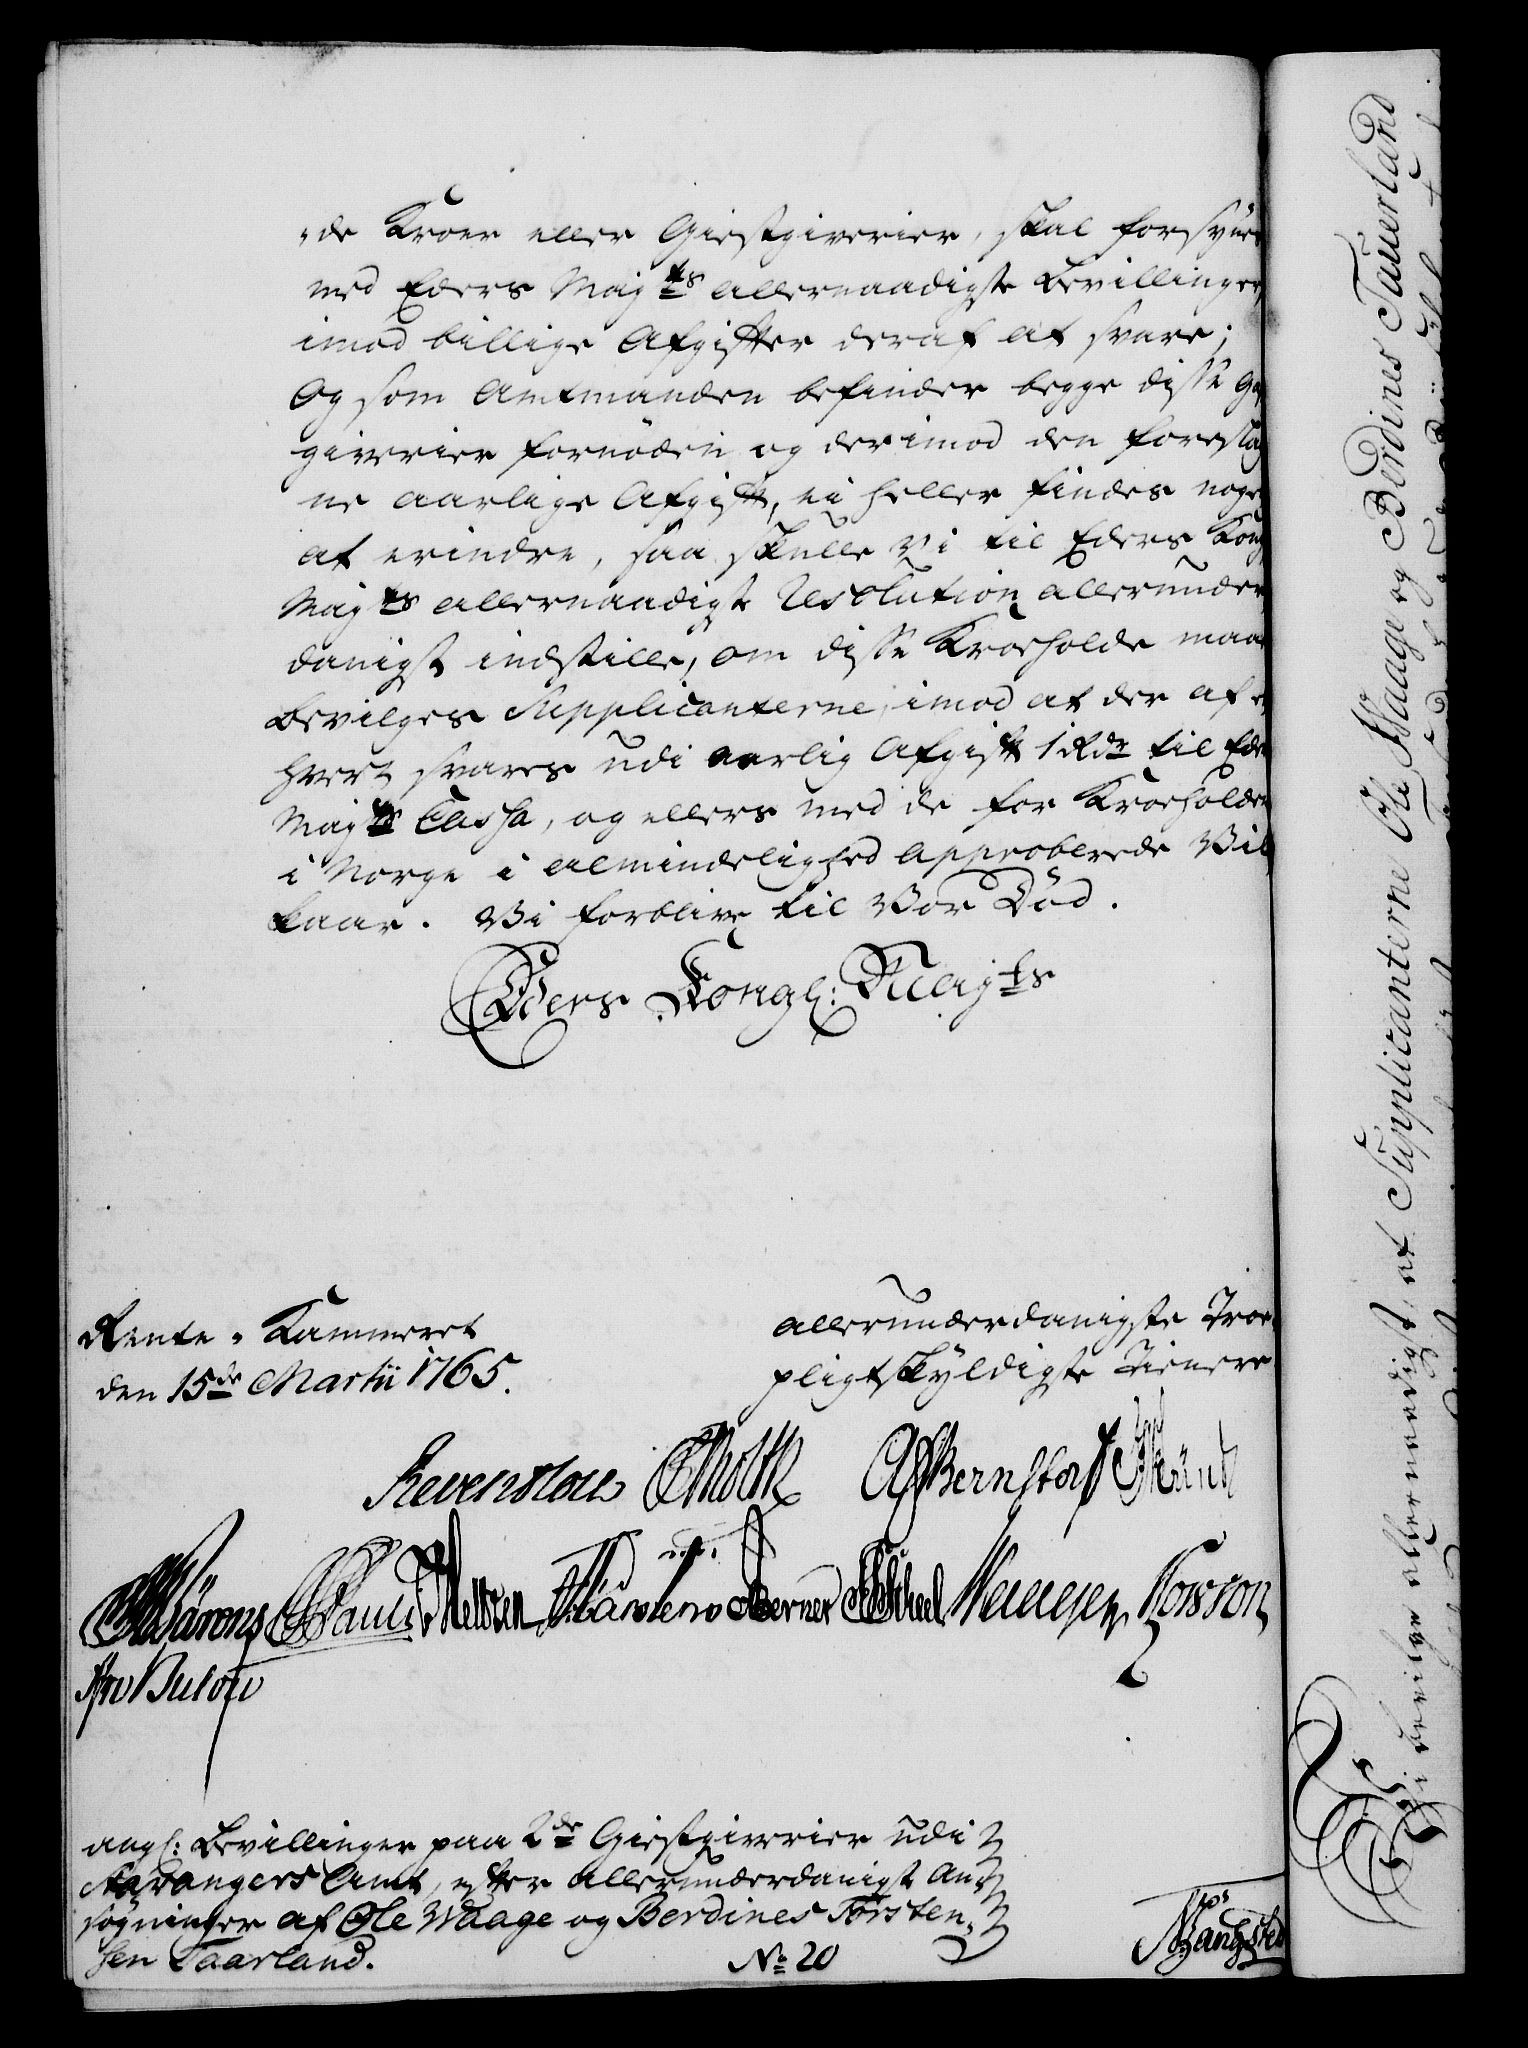 "de Kroer eller Giestgiverier, skal forsynes
med Eders Majts allernaadigste Bevillinger,
imod billige Afgifter deraf at svare;
Og som Amtmanden befinder begge disse
giverier fornøden og derimod den foreslag
ne aarlige Afgift, ei heller findes noget
at erindre, saa skulle Vi til Eders Kongl
Majts allernaadigste Resolution allerunder
danigst indstille, om disse Kroehold maa
bevilges Supplicanterne, imod at der af
hver svares udi aarlig Afgift 1 Rdr til Eders
Majts Cassa, og ellers med de for Kroehold
i Norge i almindelighed approberede Vil
kaar. Vi forblive til Vor Död.
Eders Kongl: Majts
Rente-Kammeret
den 15de Martii 1765.
allerunderdanigste Troe
pligtskyldigste Tienere
Reventlou CMoltke AGBernstorff
Berner Scheel Rosson
Bulow
angl: Bevillinger paa 2de Giestgiverier udi
Stavangers Amt, efter allerunderdanigst An-
søgninger af Ole Waage og Berdines Torsten-
sen Taarland.
No 20
Bangsted
Vi bevilge allernaadigst, at Supplicanterne Ole Waage og Berdines Tauerland